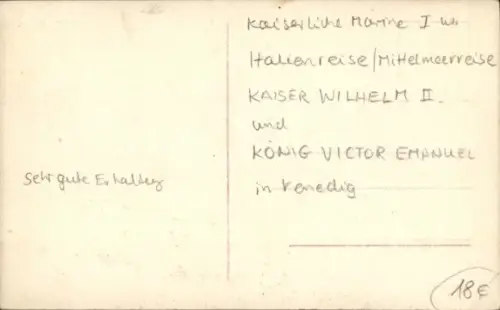 Kaiserliche Marine I WK
Italienreise/Mittelmeerreise
KAISER WILHELM II.
und
KÖNIG VICTOR EMANUEL
in Venedig
Sehr gute Erhaltung
18€